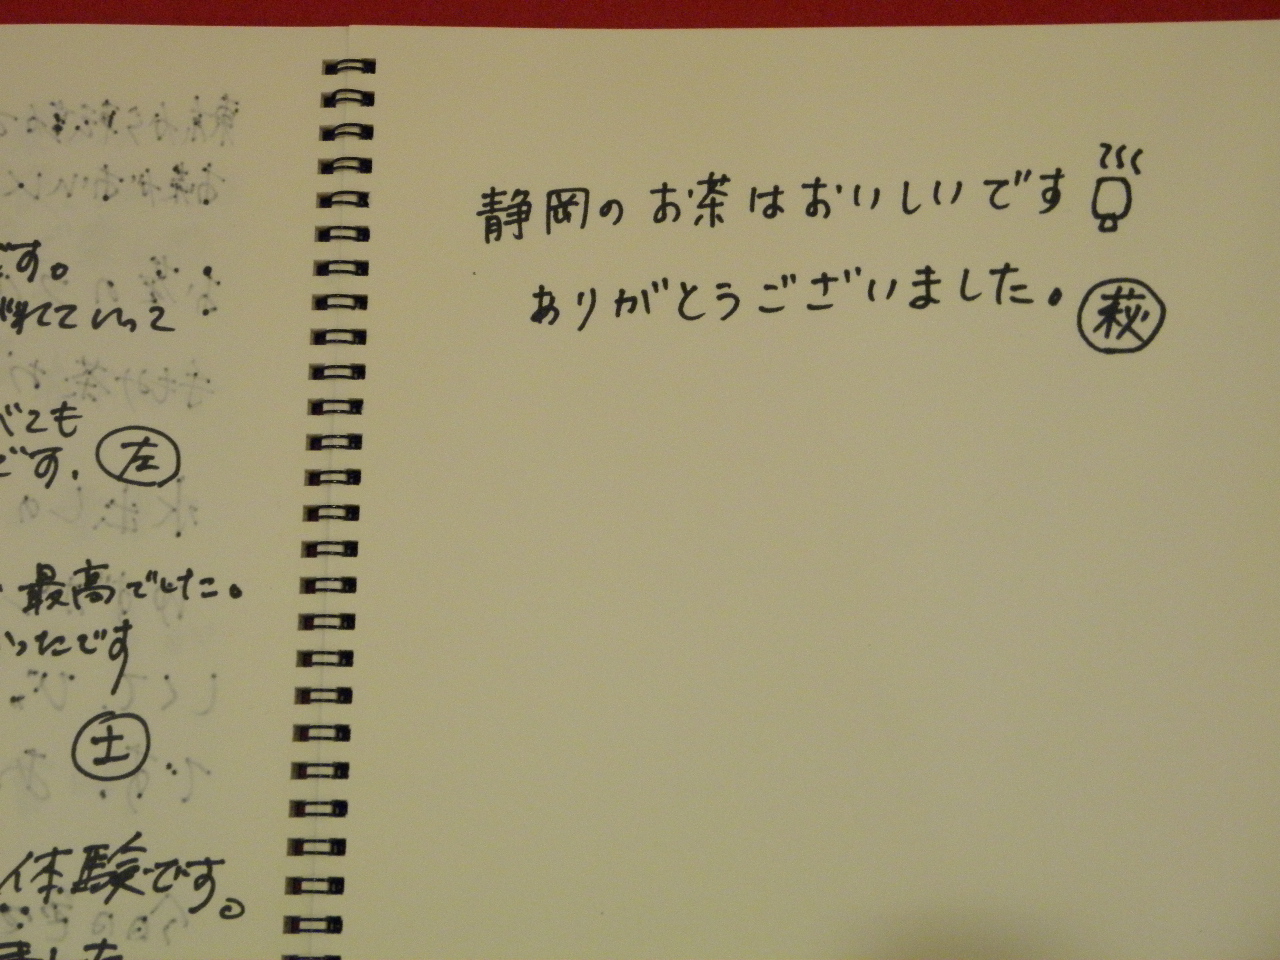 す。
れていって
べても
です. 左
最高でした。
ったです
土
体験です。
ました
静岡のお茶はおいしいです
ありがとうございました。萩